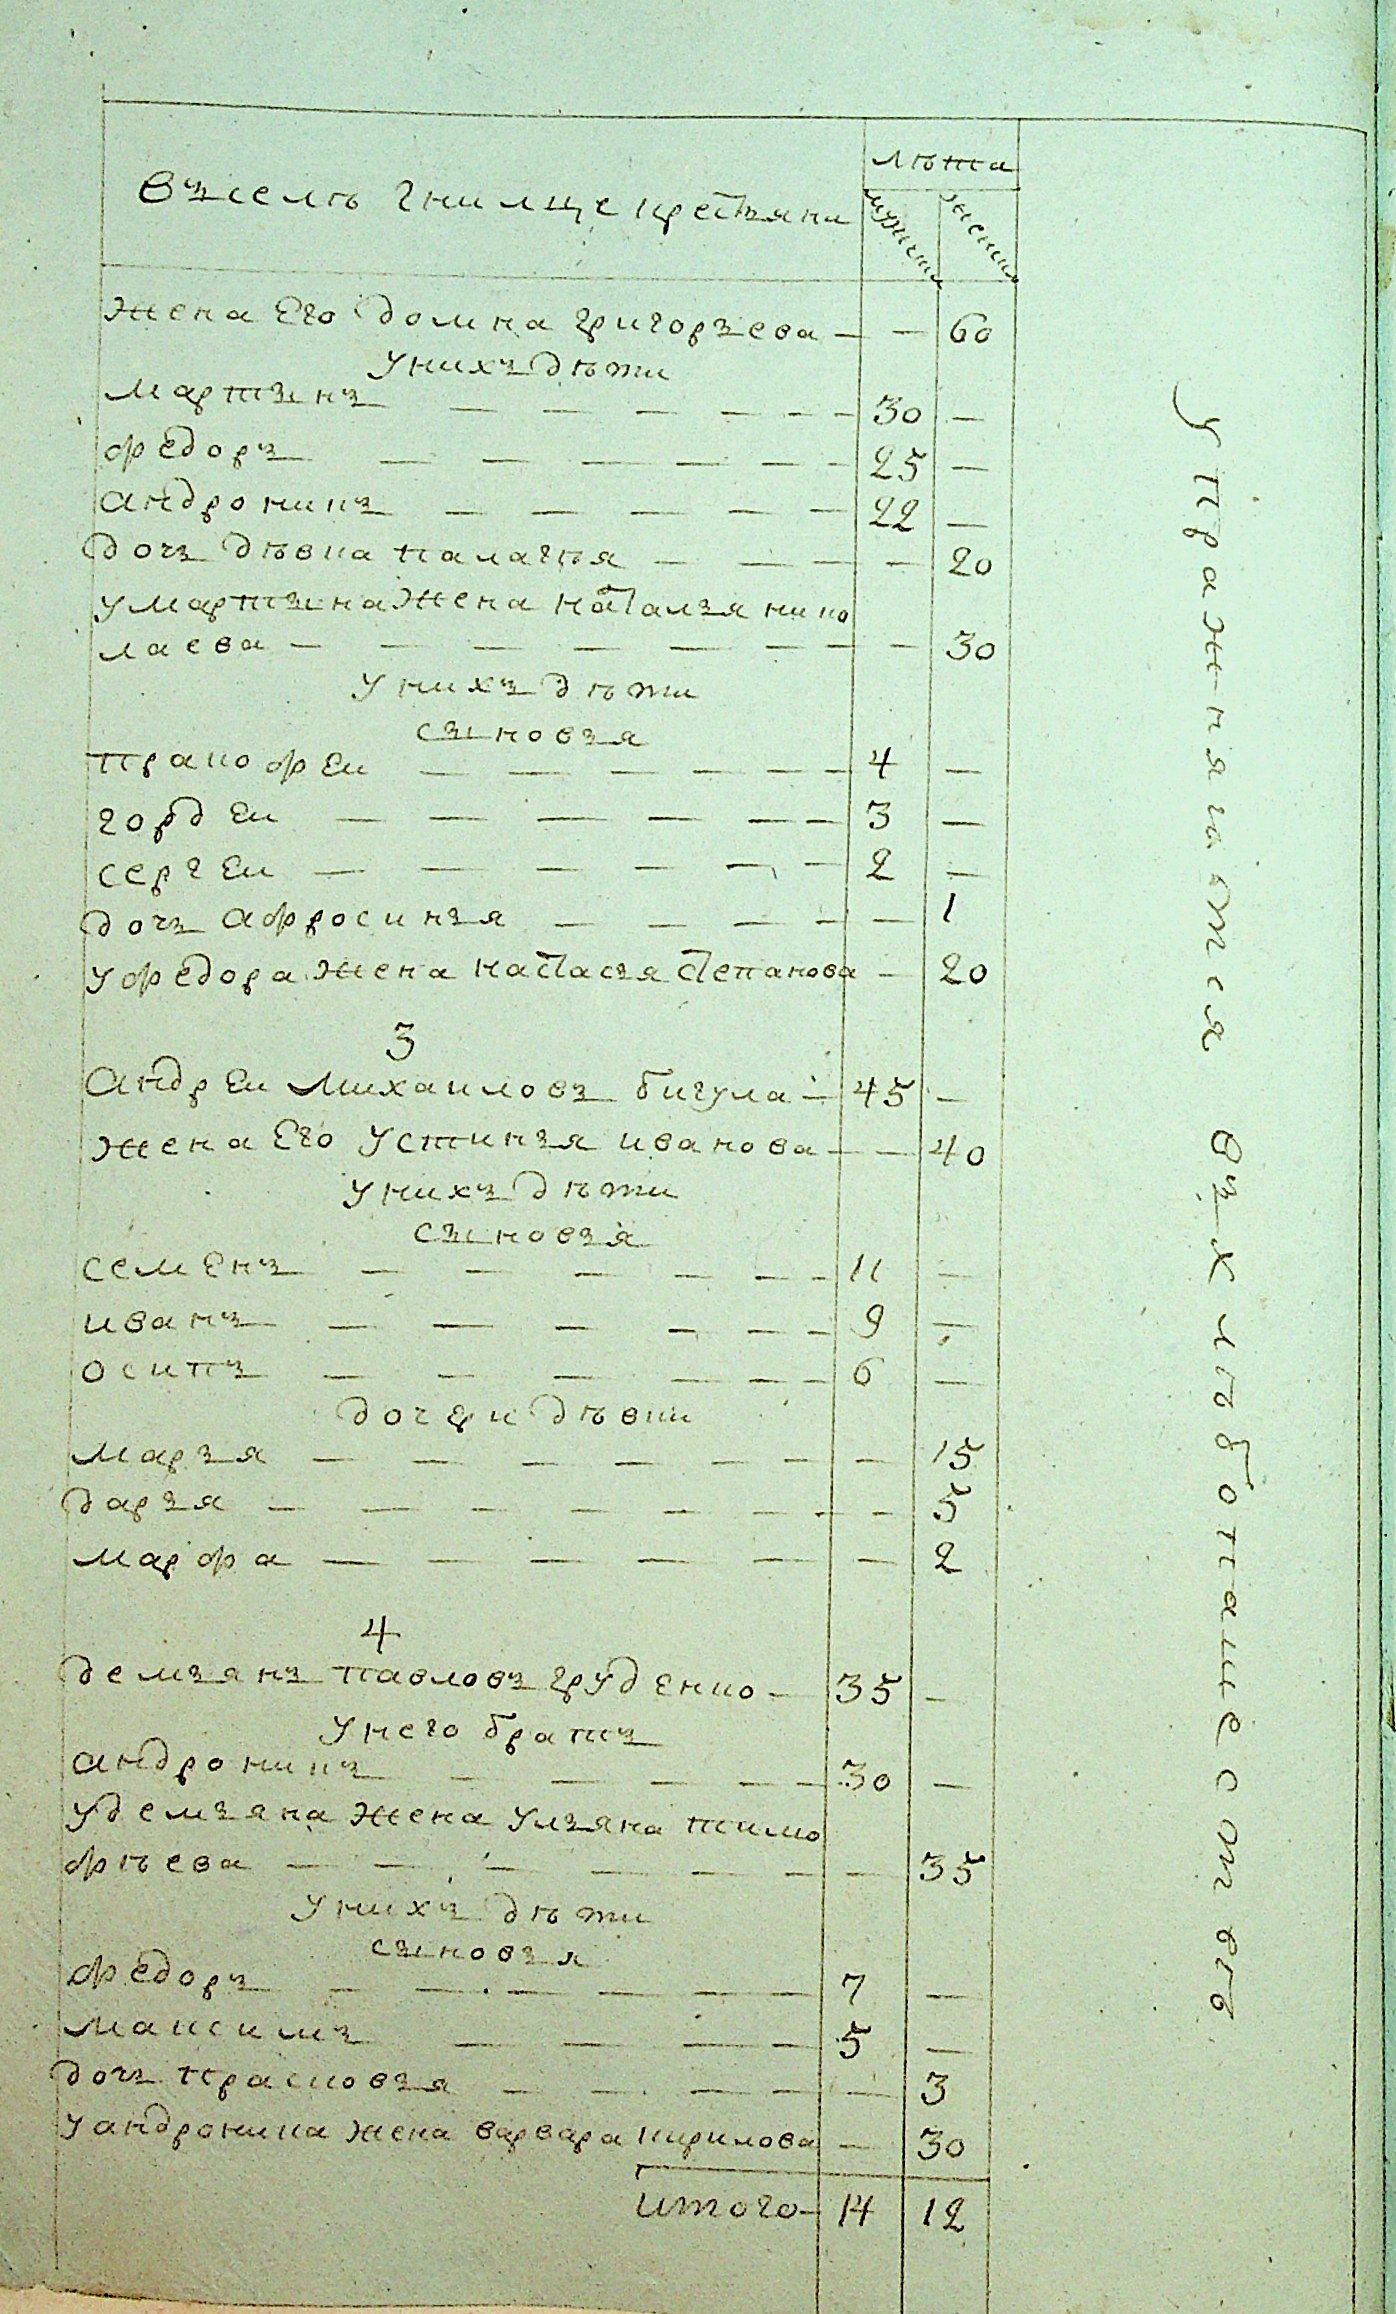 лѣта
Въселѣ Гнилще крестьяни
мужеск
женск
жена Его домна григорьева — — 60
унихъ дѣти
мартынъ — 30 —
федоръ — 25 —
андроникъ — 22 —
дочь дѣвка палагѣя — — 20
умартына жена наталья нико
лаева — — 30
унихъ дѣти
сыновья
пракофеи — 4 —
гордеи — 3 —
сергеи — 2 —
дочь афросинья — — 1
уфедора жена настасья степанова — 20
3
андреи михаиловъ бигула — 45 —
жена Его устинья иванова — — 40
унихъ дѣти
сыновья
семенъ — 11 —
иванъ — 9 —
осипъ — 6 —
дочери дѣвки
марья — — 15
дарья — — 5
марфа — — 2
4
демьянъ павловъ груденко — 35 —
унего братъ
андроникъ — 30 —
удемьяна жена ульяна тимо
фѣева — — 35
унихъ дѣти
сыновья
федоръ — 7 —
максимъ — 5 —
дочь прасковья — — 3
уандроника жена варвара кирилова — 30
итого — 14 12
упражняются въ хлѣбопашесотвѣ